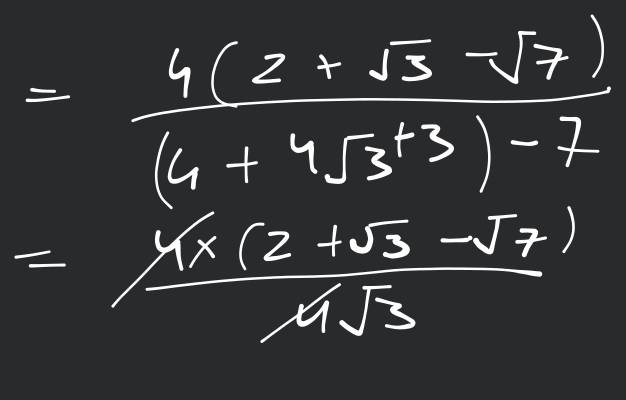 = 4(2 + √3 - √7) / (4 + 4√3 + 3) - 7
= 4 × (2 + √3 - √7) / 4√3